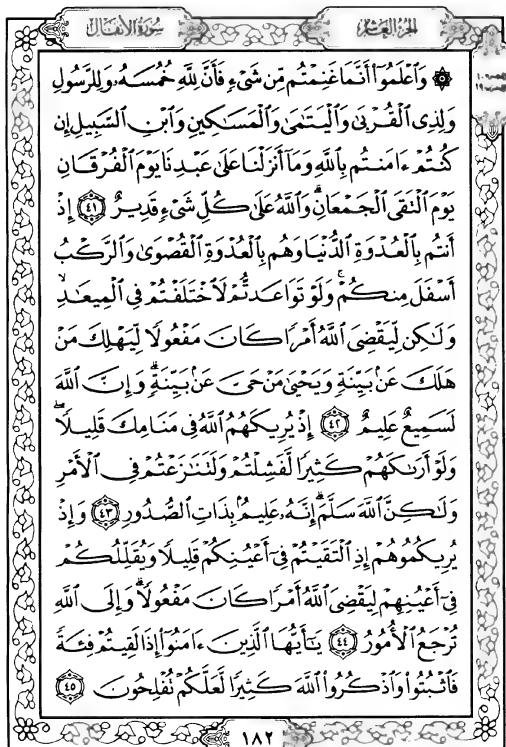 سُورَةُ الأَنفَالِ
الجُزءُ العَاشِرُ
۞ وَٱعْلَمُوٓا۟ أَنَّمَا غَنِمْتُم مِّن شَىْءٍ فَأَنَّ لِلَّهِ خُمُسَهُۥ وَلِلرَّسُولِ
وَلِذِى ٱلْقُرْبَىٰ وَٱلْيَتَٰمَىٰ وَٱلْمَسَٰكِينِ وَٱبْنِ ٱلسَّبِيلِ إِن
كُنتُمْ ءَامَنتُم بِٱللَّهِ وَمَآ أَنزَلْنَا عَلَىٰ عَبْدِنَا يَوْمَ ٱلْفُرْقَانِ
يَوْمَ ٱلْتَقَى ٱلْجَمْعَانِ ۗ وَٱللَّهُ عَلَىٰ كُلِّ شَىْءٍ قَدِيرٌ ٤١ إِذْ
أَنتُم بِٱلْعُدْوَةِ ٱلدُّنْيَا وَهُم بِٱلْعُدْوَةِ ٱلْقُصْوَىٰ وَٱلرَّكْبُ
أَسْفَلَ مِنكُمْ ۚ وَلَوْ تَوَاعَدتُّمْ لَٱخْتَلَفْتُمْ فِى ٱلْمِيعَٰدِ ۙ
وَلَٰكِن لِّيَقْضِىَ ٱللَّهُ أَمْرًا كَانَ مَفْعُولًا لِّيَهْلِكَ مَنْ
هَلَكَ عَنۢ بَيِّنَةٍ وَيَحْيَىٰ مَنْ حَىَّ عَنۢ بَيِّنَةٍ ۗ وَإِنَّ ٱللَّهَ
لَسَمِيعٌ عَلِيمٌ ٤٢ إِذْ يُرِيكَهُمُ ٱللَّهُ فِى مَنَامِكَ قَلِيلًا ۖ
وَلَوْ أَرَىٰكَهُمْ كَثِيرًا لَّفَشِلْتُمْ وَلَتَنَٰزَعْتُمْ فِى ٱلْأَمْرِ
وَلَٰكِنَّ ٱللَّهَ سَلَّمَ ۗ إِنَّهُۥ عَلِيمٌۢ بِذَاتِ ٱلصُّدُورِ ٤٣ وَإِذْ
يُرِيكُمُوهُمْ إِذِ ٱلْتَقَيْتُمْ فِىٓ أَعْيُنِكُمْ قَلِيلًا وَيُقَلِّلُكُمْ
فِىٓ أَعْيُنِهِمْ لِيَقْضِىَ ٱللَّهُ أَمْرًا كَانَ مَفْعُولًا ۗ وَإِلَى ٱللَّهِ
تُرْجَعُ ٱلْأُمُورُ ٤٤ يَٰٓأَيُّهَا ٱلَّذِينَ ءَامَنُوٓا۟ إِذَا لَقِيتُمْ فِئَةً
فَٱثْبُتُوا۟ وَٱذْكُرُوا۟ ٱللَّهَ كَثِيرًا لَّعَلَّكُمْ تُفْلِحُونَ ٤٥
١٨٢